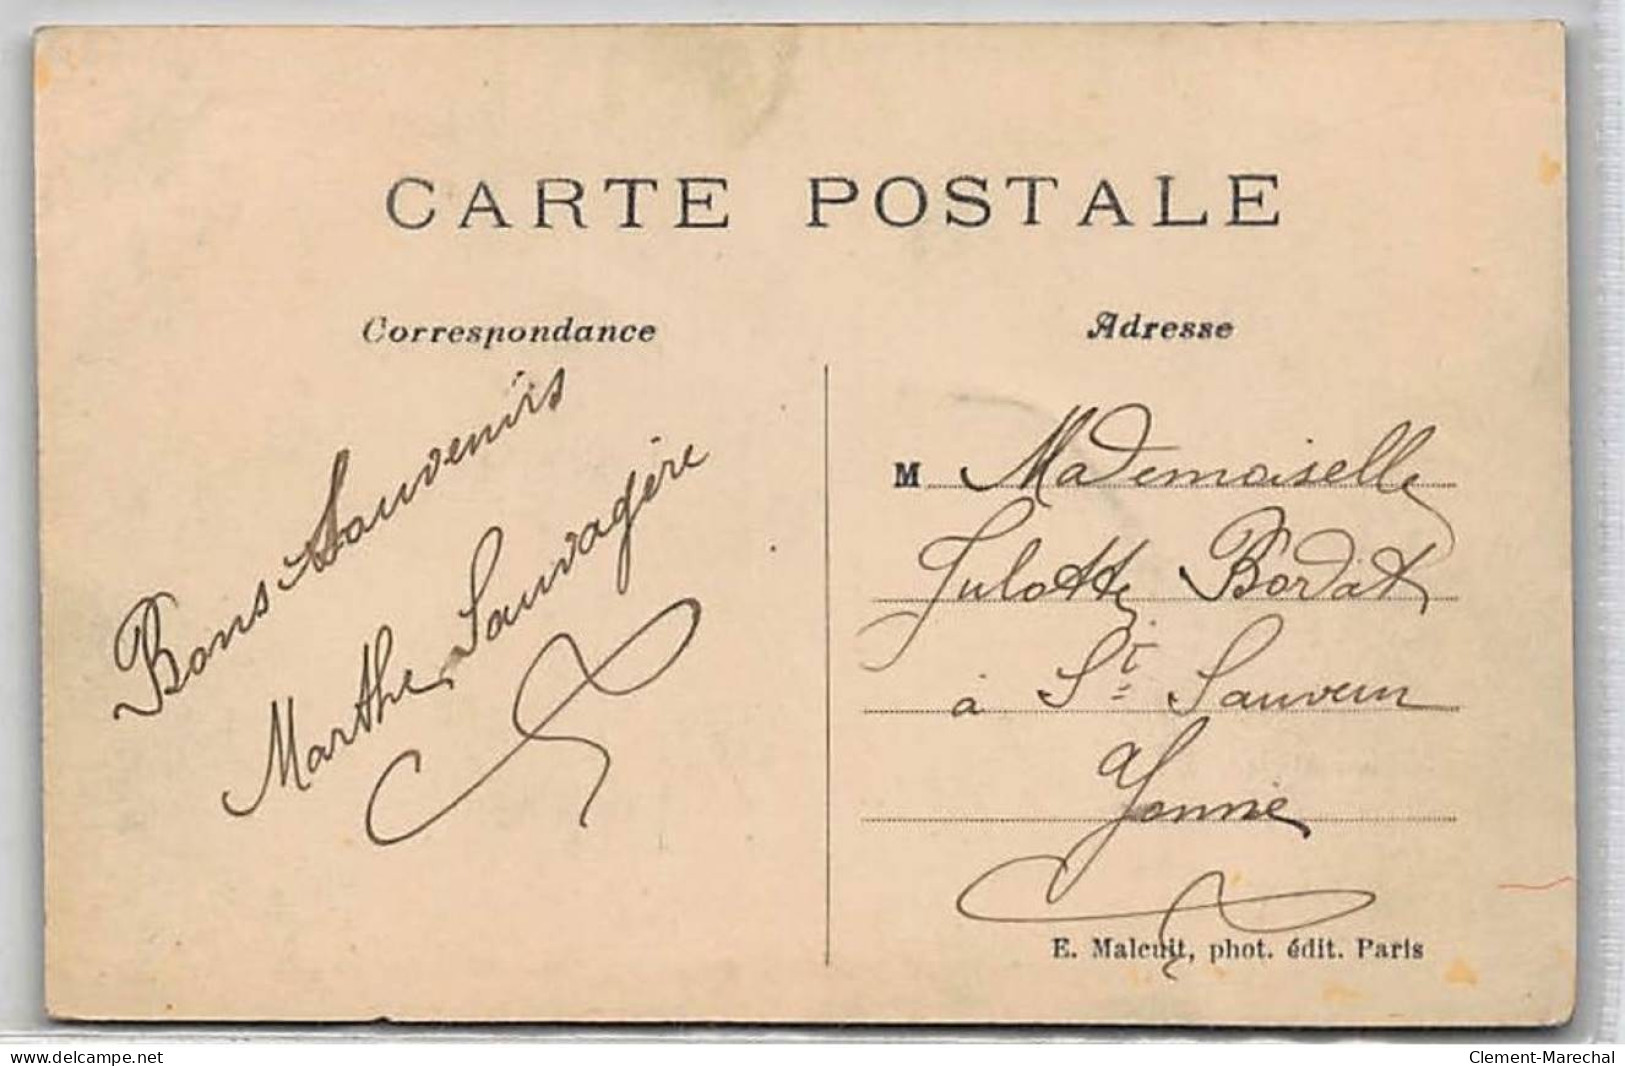 CARTE POSTALE
Correspondance
Bons Souvenirs
Marthe Sauvagère
Adresse
M Mademoiselle
Julotte Bordat
à St Sauveur
Yonne
E. Malcuit, phot. édit. Paris
www.delcampe.net
Clement-Marechal